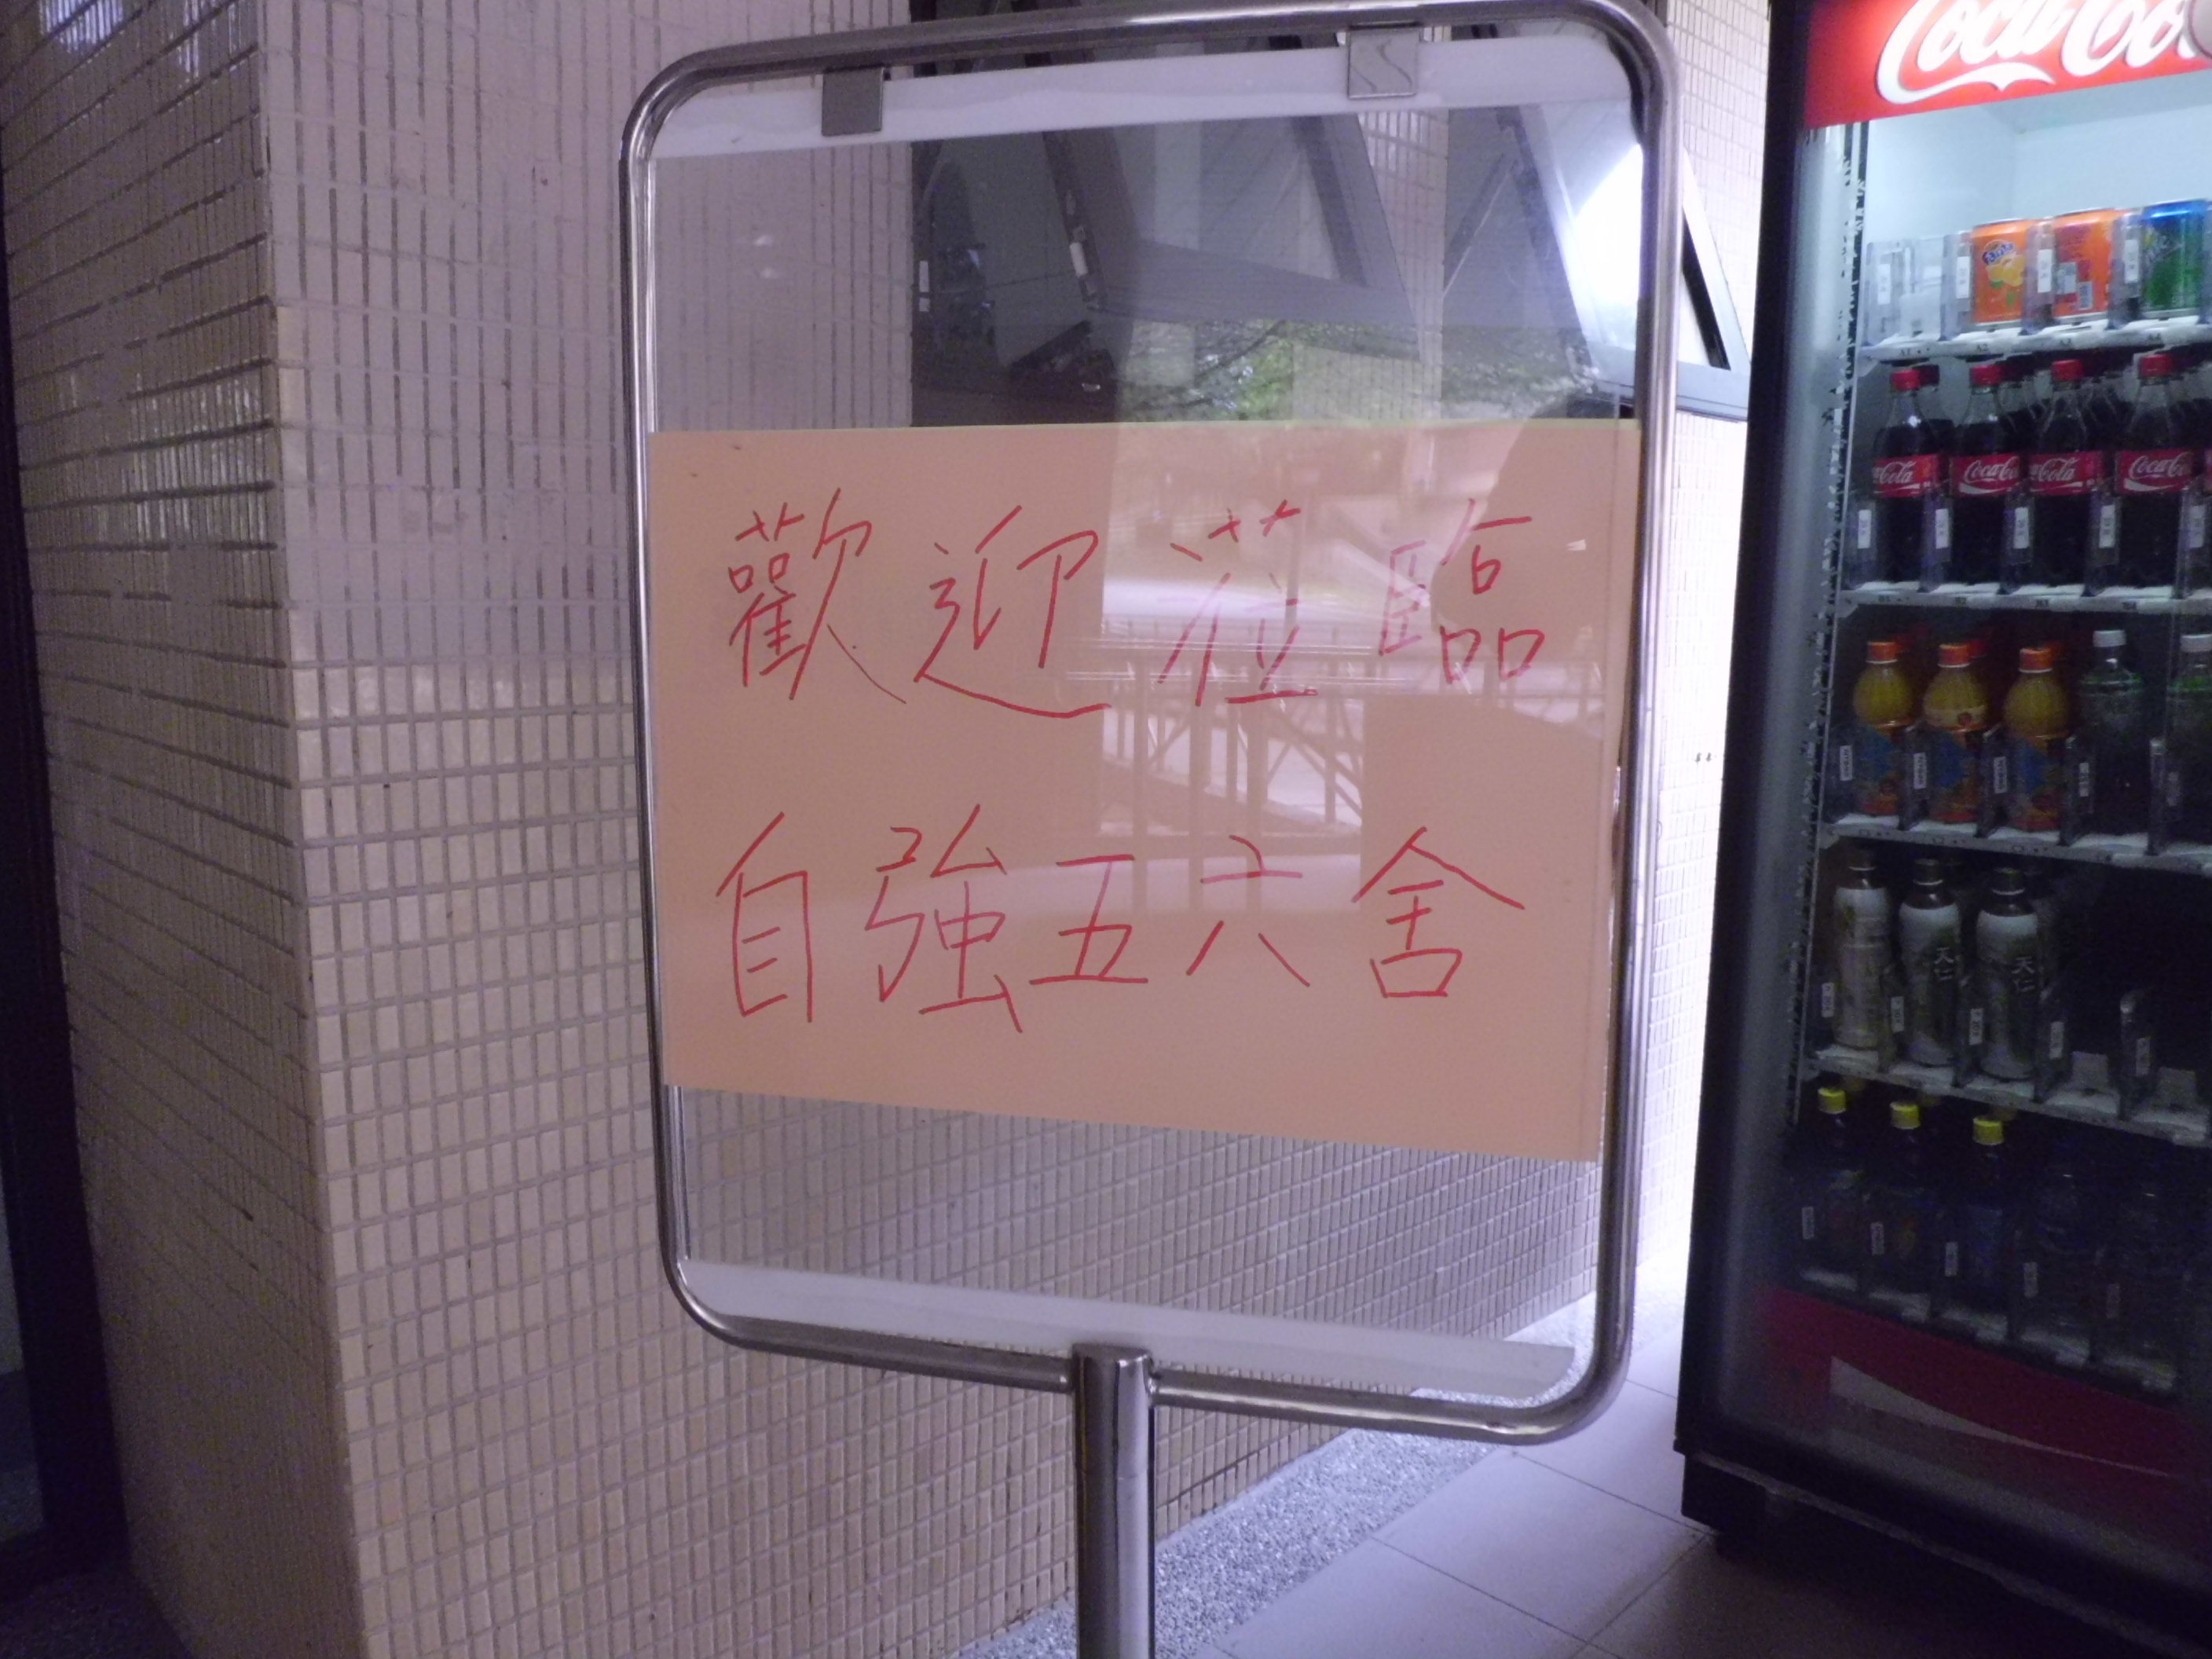 Coca Co
歡迎蒞臨
自強五六舍
Fanta
Coca-Cola
Coca-Co
Cola
Coca-Co
天仁
天仁